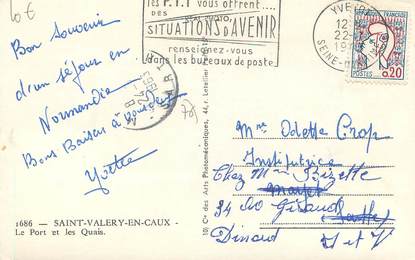 10 €
les P.T.T vous offrent....
DES
SITUATIONS D'AVENIR
renseignez-vous
dans les bureaux de poste
YVETOT
12
22-
SEINE-
POSTES
0,20
Bon Souvenir
d'un séjour en
Normandie
Bons Baisers à vous deux
Yvette
Mme Odette Crop
Institutrice
Chez Mme Bizette
34 Giraud
Dinard
I et V
1686 — SAINT-VALERY-EN-CAUX -
Le Port et les Quais.
10) Cie des Arts Photomécaniques, 44, r. Letellier